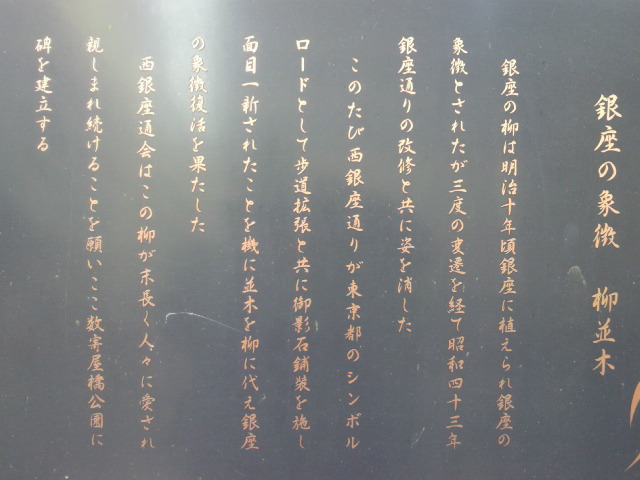 銀座の象徴 柳並木
銀座の柳は明治十年頃銀座に植えられ銀座の
象徴とされたが三度の変遷を経て昭和四十三年
銀座通りの改修と共に姿を消した
このたび西銀座通りが東京都のシンボル
ロードとして歩道拡張と共に御影石舗装を施し
面目一新されたことを機に並木を柳に代え銀座
の象徴復活を果たした
西銀座通会はこの柳が末長く人々に愛され
親しまれ続けることを願いここ数寄屋橋公園に
碑を建立する